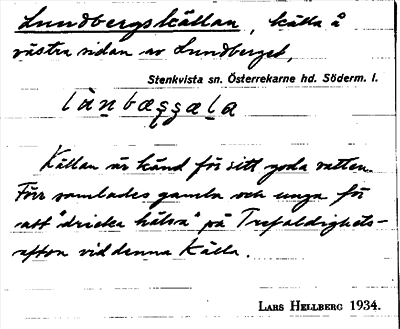 Lundbergskällan, källa å
västra sidan av Lundberget,
Stenkvista sn. Österrekarne hd. Söderm. l.
Källan är känd för sitt goda vatten.
Förr samlades gamla och unga för
att "dricka hälsa" på Trefaldighets-
afton vid denna källa.
LARS HELLBERG 1934.